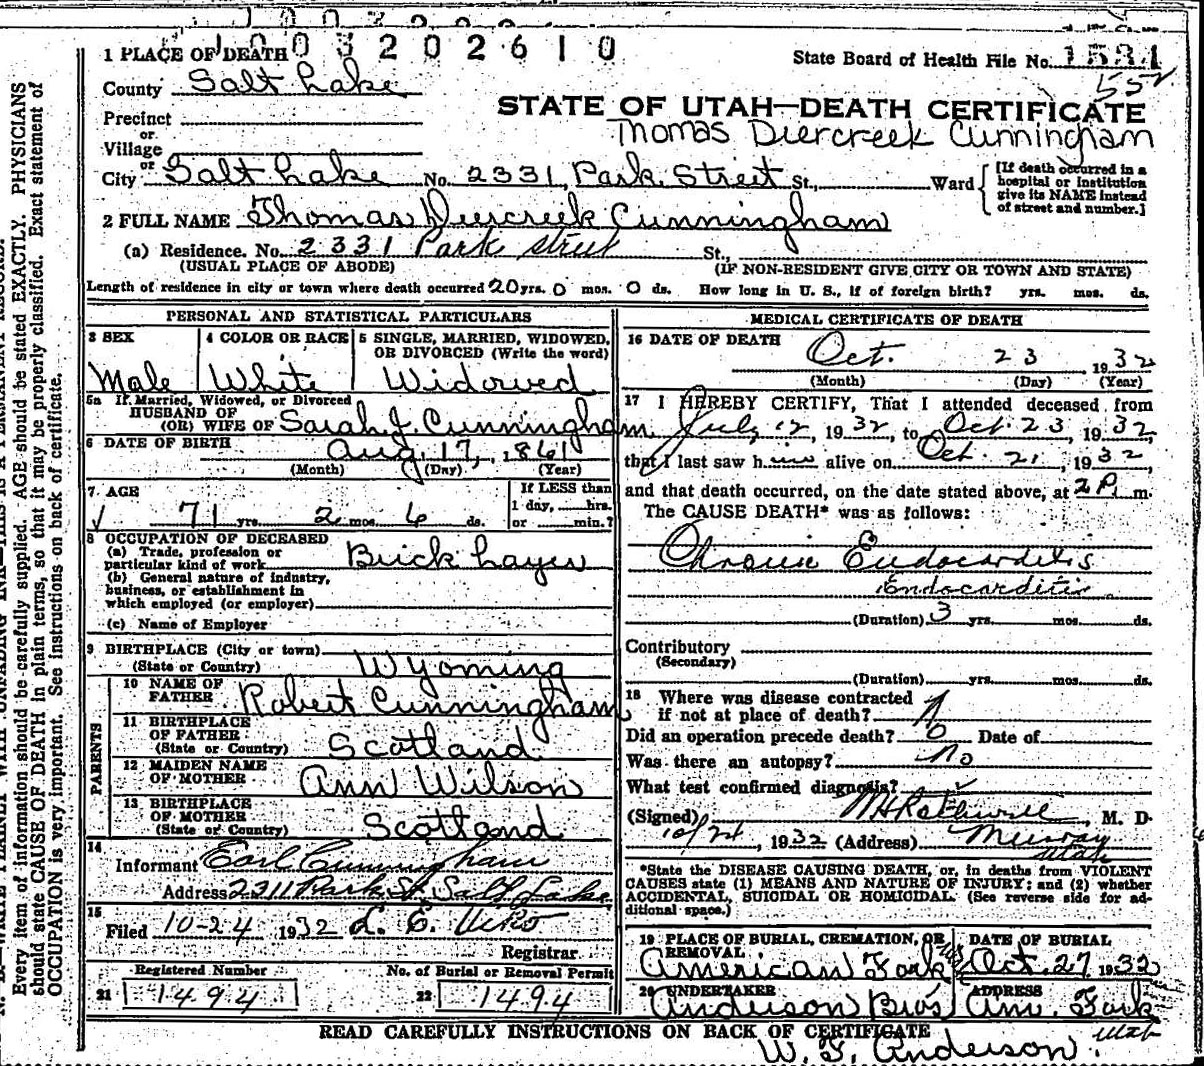 1003202610
1 PLACE OF DEATH
State Board of Health File No. 1534
County Salt Lake
552
STATE OF UTAH—DEATH CERTIFICATE
Precinct
or
Village
Thomas Diercreek Cunningham
or
City Salt Lake No. 2331, Park Street St., Ward
[If death occurred in a hospital or institution give its NAME instead of street and number.]
2 FULL NAME Thomas Deercreek Cunningham
(a) Residence. No. 2331 Park Street St.,
(USUAL PLACE OF ABODE) (IF NON-RESIDENT GIVE CITY OR TOWN AND STATE)
Length of residence in city or town where death occurred 20 yrs. 0 mos. 0 ds. How long in U. S., if of foreign birth? yrs. mos. ds.
PERSONAL AND STATISTICAL PARTICULARS
3 SEX Male
4 COLOR OR RACE White
5 SINGLE, MARRIED, WIDOWED, OR DIVORCED (Write the word) Widowed
5a If Married, Widowed, or Divorced
HUSBAND OF
(OR) WIFE OF Sarah J. Cunningham
6 DATE OF BIRTH Aug. 17, 1861
(Month) (Day) (Year)
7 AGE 71 yrs. 2 mos. 6 ds.
If LESS than 1 day, hrs. or min.?
8 OCCUPATION OF DECEASED
(a) Trade, profession or particular kind of work Brick Layer
(b) General nature of industry, business, or establishment in which employed (or employer)
(c) Name of Employer
9 BIRTHPLACE (City or town)
(State or Country) Wyoming
PARENTS
10 NAME OF FATHER Robert Cunningham
11 BIRTHPLACE OF FATHER (State or Country) Scotland
12 MAIDEN NAME OF MOTHER Ann Wilson
13 BIRTHPLACE OF MOTHER (State or Country) Scotland
14 Informant Earl Cunningham
Address 2311 Park St. Salt Lake
15 Filed 10-24 1932 L. E.
Registrar
Registered Number
21 1494
No. of Burial or Removal Permit
22 1494
MEDICAL CERTIFICATE OF DEATH
16 DATE OF DEATH Oct. 23, 1932
(Month) (Day) (Year)
17 I HEREBY CERTIFY, That I attended deceased from
July 12, 1932, to Oct. 23, 1932,
that I last saw him alive on Oct. 21, 1932,
and that death occurred, on the date stated above, at 2 P. m.
The CAUSE DEATH* was as follows:
Chronic Endocarditis
Endocarditis
(Duration) 3 yrs. mos. ds.
Contributory
(Secondary)
(Duration) yrs. mos. ds.
18 Where was disease contracted
if not at place of death?
Did an operation precede death? 0 Date of
Was there an autopsy? No
What test confirmed diagnosis?
(Signed) , M. D.
10/24, 1932 (Address) Murray
Utah
*State the DISEASE CAUSING DEATH, or, in deaths from VIOLENT
CAUSES state (1) MEANS AND NATURE OF INJURY; and (2) whether
ACCIDENTAL, SUICIDAL OR HOMICIDAL. (See reverse side for ad-
ditional space.)
19 PLACE OF BURIAL, CREMATION, OR REMOVAL American Fork
DATE OF BURIAL Oct. 27 1932
20 UNDERTAKER Anderson Bros
ADDRESS Am. Fork
Utah
READ CAREFULLY INSTRUCTIONS ON BACK OF CERTIFICATE
W. F. Anderson.
Every item of information should be carefully supplied. AGE should be stated EXACTLY. PHYSICIANS
should state CAUSE OF DEATH in plain terms, so that it may be properly classified. Exact statement of
OCCUPATION is very important. See instructions on back of certificate.